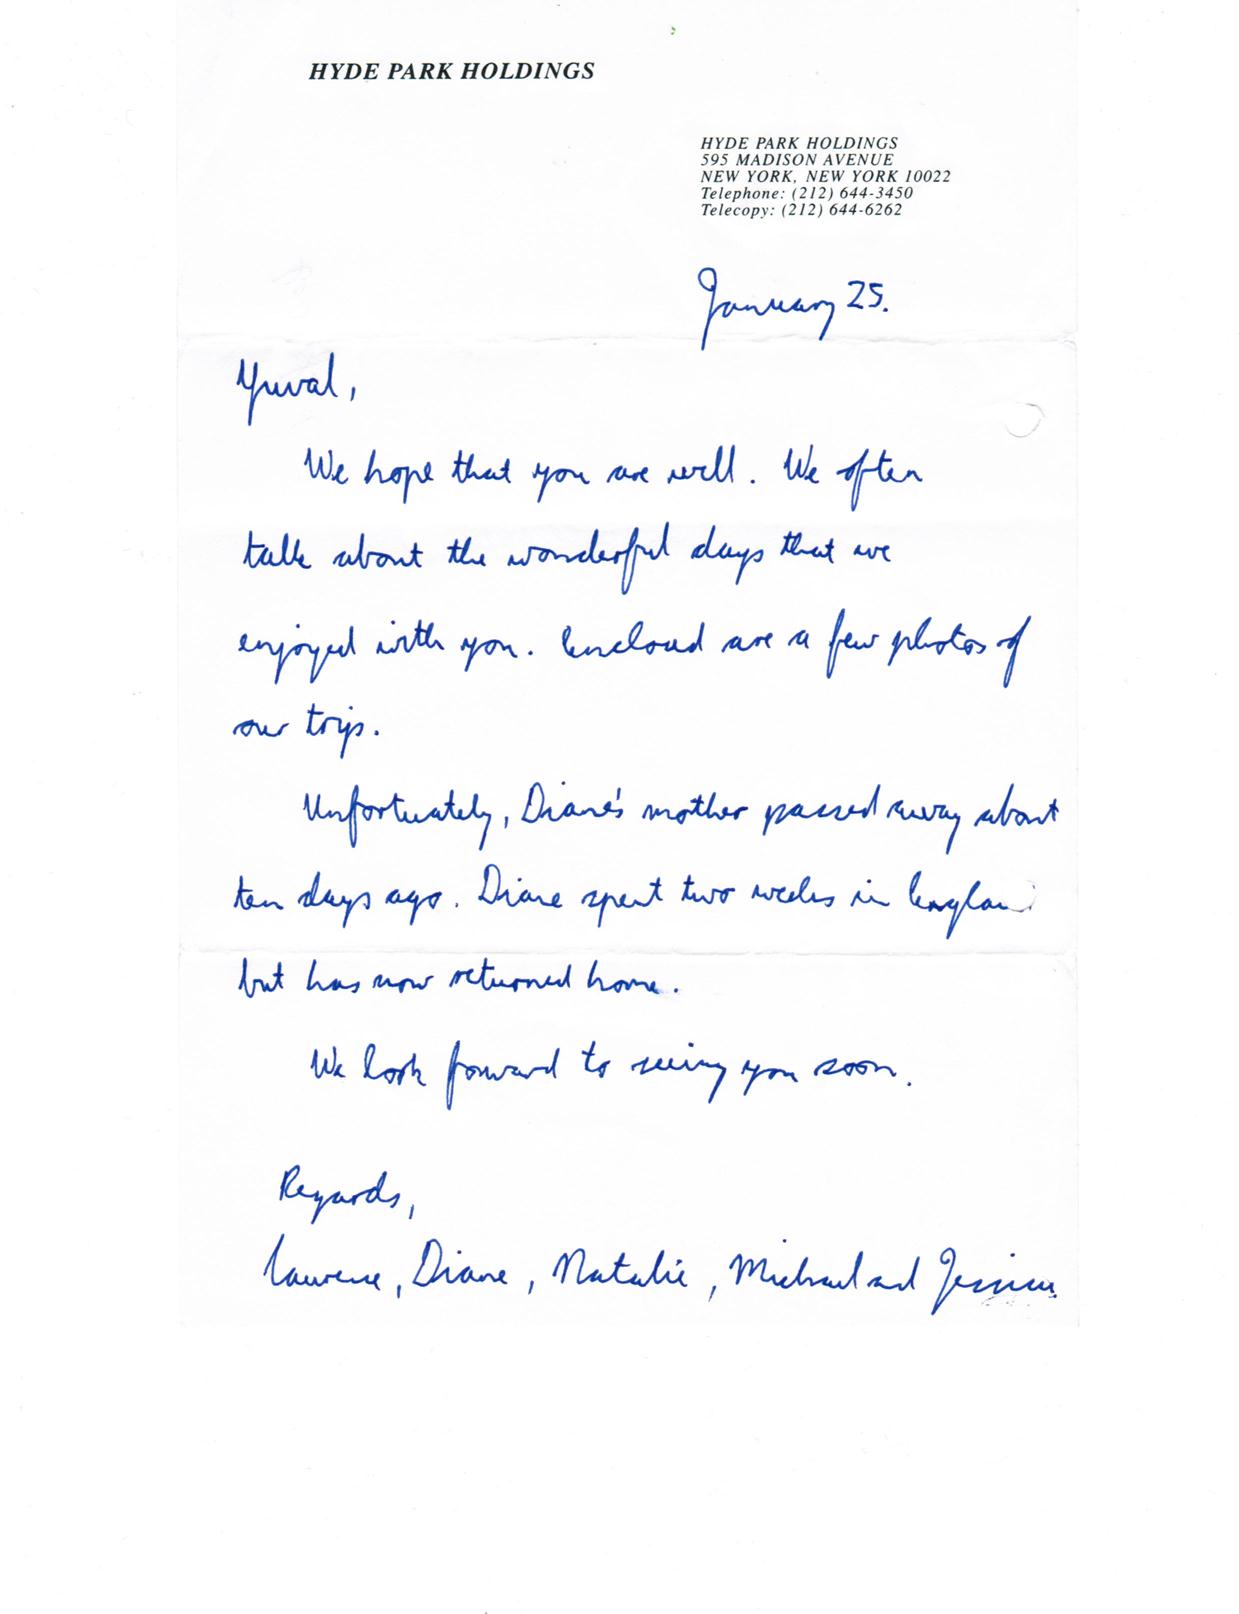 HYDE PARK HOLDINGS
HYDE PARK HOLDINGS
595 MADISON AVENUE
NEW YORK, NEW YORK 10022
Telephone: (212) 644-3450
Telecopy: (212) 644-6262
January 25.
Yuval,
We hope that you are well. We often
talk about the wonderful days that we
enjoyed with you. Enclosed are a few photos of
our trip.
Unfortunately, Diane's mother passed away about
ten days ago. Diane spent two weeks in England
but has now returned home.
We look forward to seeing you soon.
Regards,
Laurence, Diane, Natalie, Michael and Jessica.